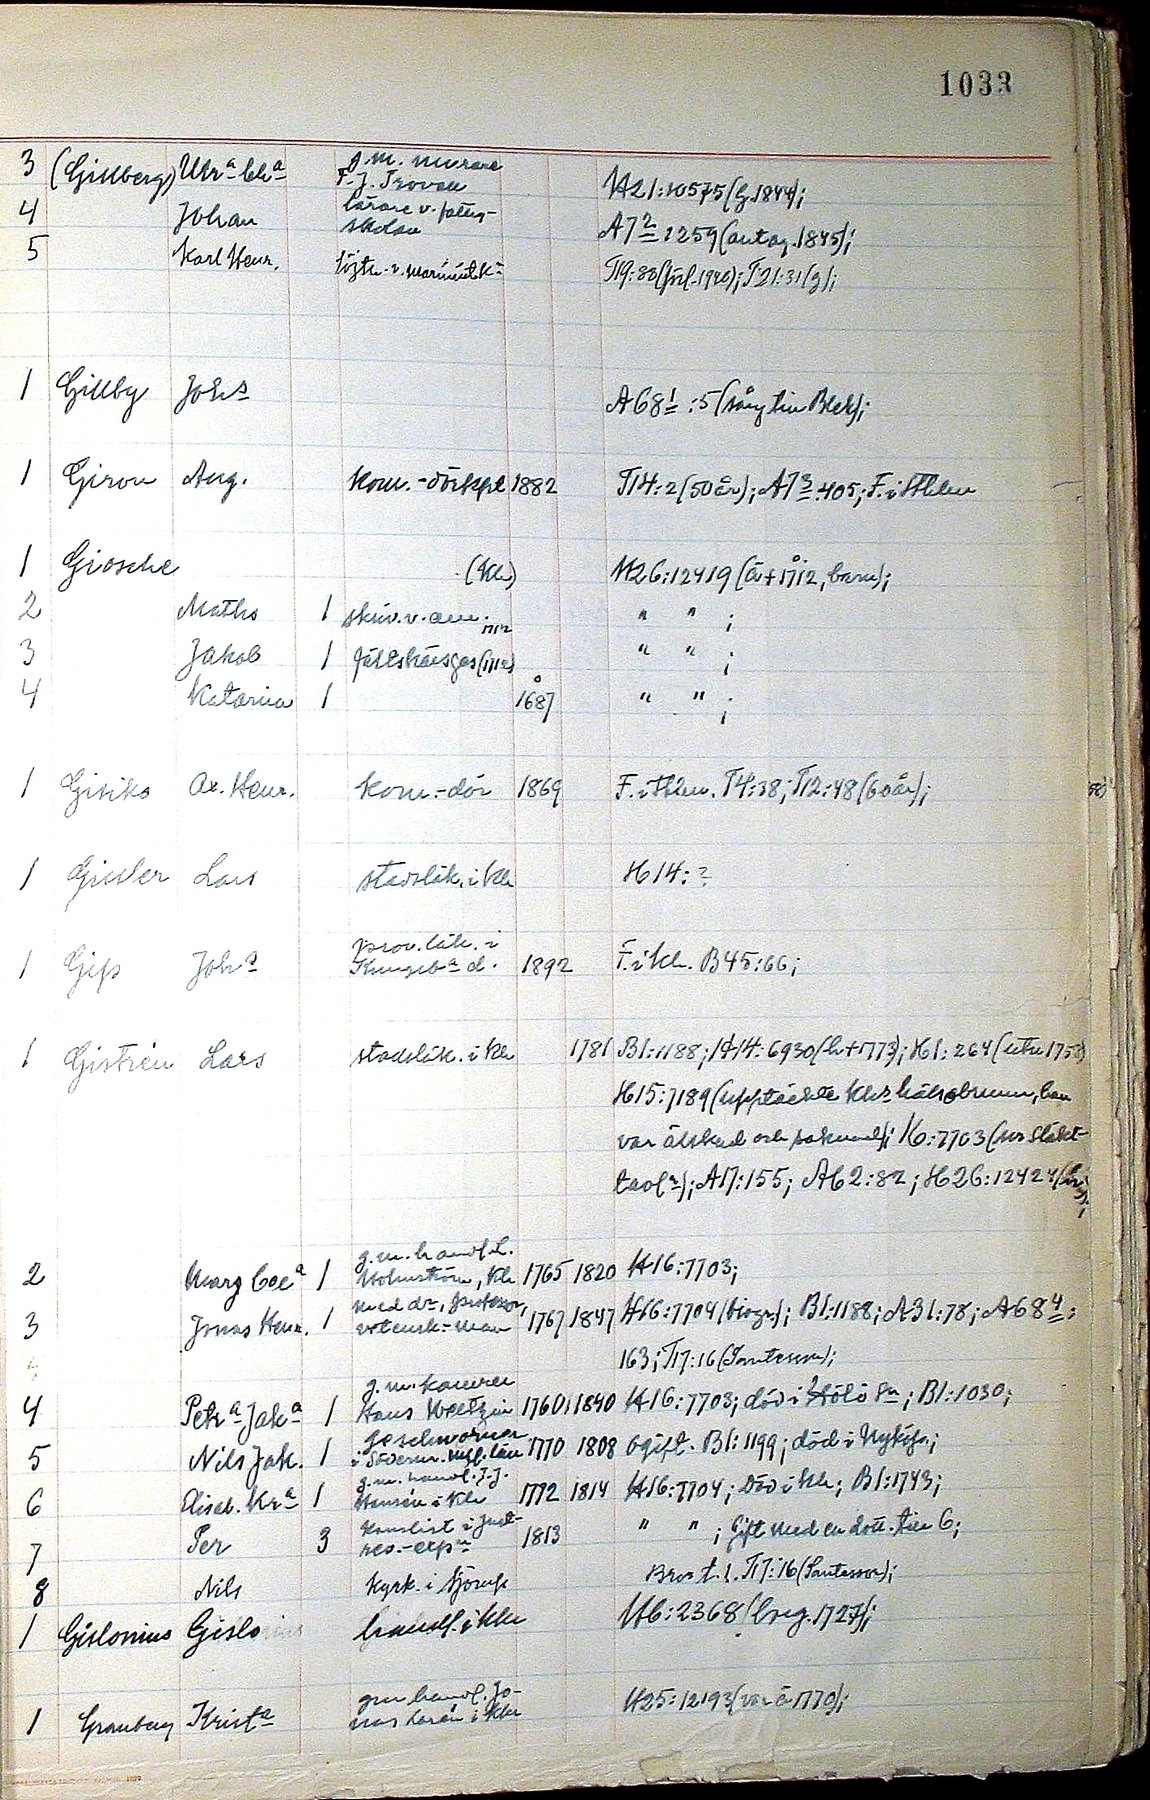 1033
3 (Gillberg) Ulr.a Ch.a g.m. murare
F. J. H21:10575 (g. 1844);
4 Johan lärare v. fattig-
skolan A7 2:1259 (antag. 1845);
5 Karl Henr. löjtn. v. T19:88 (1940); T21:31 (g);
1 Gillby Joh.s A68 1:5 (sång till Blek);
1 Giron Aug. kom.-dörkpt 1882 T14:2 (50 år); A7 3:405; F. i Sthlm
1 Giosche (Klr) H26:12419 (å + 1712, barn);
2 Maths 1 skriv. v. 1712 " " ;
3 Jakob 1 (1712) " " ;
4 Katarina 1 1687 " " ;
1 Gisiko Ax. Henr. kom.-dör 1869 F. i Sthlm. T4:38; T12:48 (60 år);
1 Gissler Lars stadsläk. i Klr H14:?
1 Gip Joh.s prov.läk. i
Kungsb.a d. 1892 F. i Klr. B45:66;
1 Gistrén Lars stadsläk. i Klr 1781 B1:1188; H14:6930 (h + 1773); H1:264 (utn 1752)
H15:7189 (upptäckte Klr.s hälsobrunn, han
var älskad och saknad); 16:7703 (urs släkt-
tavl.a); A17:155; A62:82; H26:12424
2 Marg Cec.a 1 g.m. handl. L.
Holmström, Klr 1765 1820 H16:7703;
3 Jonas Henr. 1 med dr, professor,
vetensk.-man 1767 1847 H16:7704 (biogr.); B1:1188; A31:78; A68 4:
163; T17:16 (Santesson);
4 Petr.a Jak.a 1 g.m. kamrer
Hans 1760 1840 H16:7703; död i Hölö sn; B1:1030;
5 Nils Jak. 1 geschworner
i Söderm. 1770 1808 ogift. B1:1199; död i Nyköp.;
6 Elisab. Kr.a 1 g.m. handl. J. J.
Hansén i Klr 1772 1814 H16:7704; död i Klr; B1:1743;
7 Per 3 kanslist i just-
rev.-exp.n 1813 " " ; gift med en dott. till 6;
8 Nils kyrk. i Bror t. 1. T17:16 (Santesson);
1 Gislonius Gislo handl. i Klr H6:2368 (beg. 1727);
1 Granberg Krist.a g.m. handl. Jo-
nas i Klr H25:12193 (var å 1770);